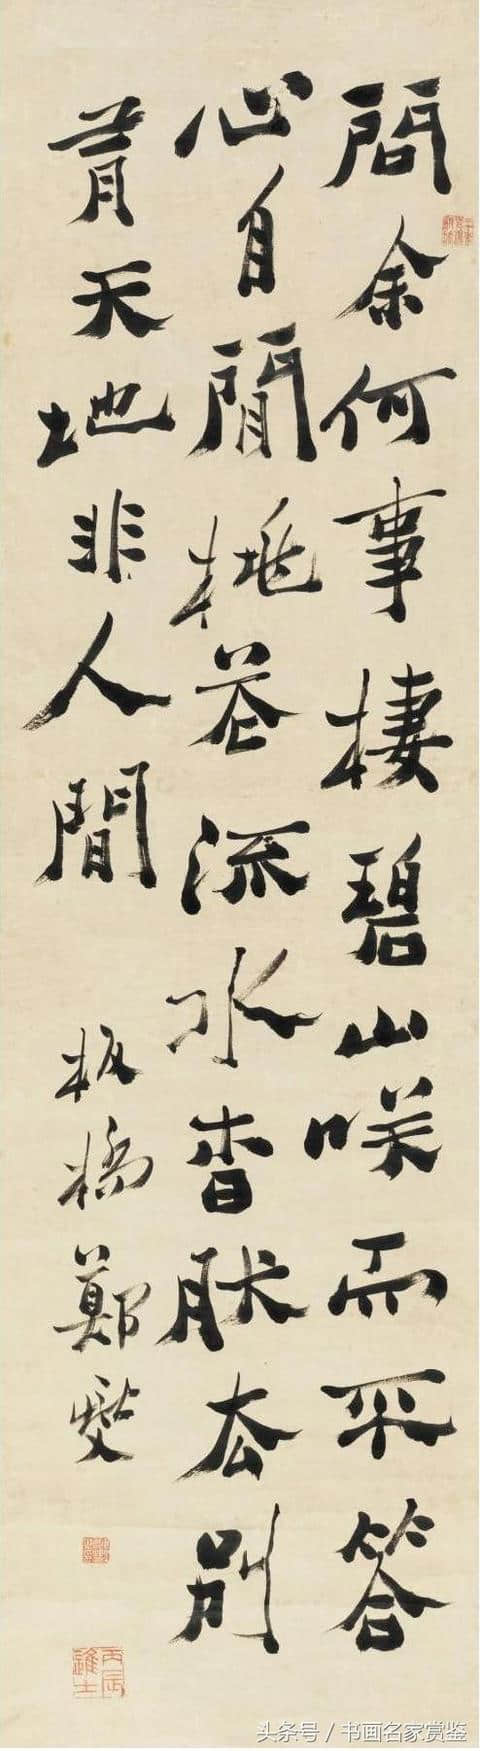 問余何事棲碧山咲而不答
心自閒桃花流水杳然去別
有天地非人間
板橋鄭燮
丙辰進士
头条号 / 书画名家赏鉴